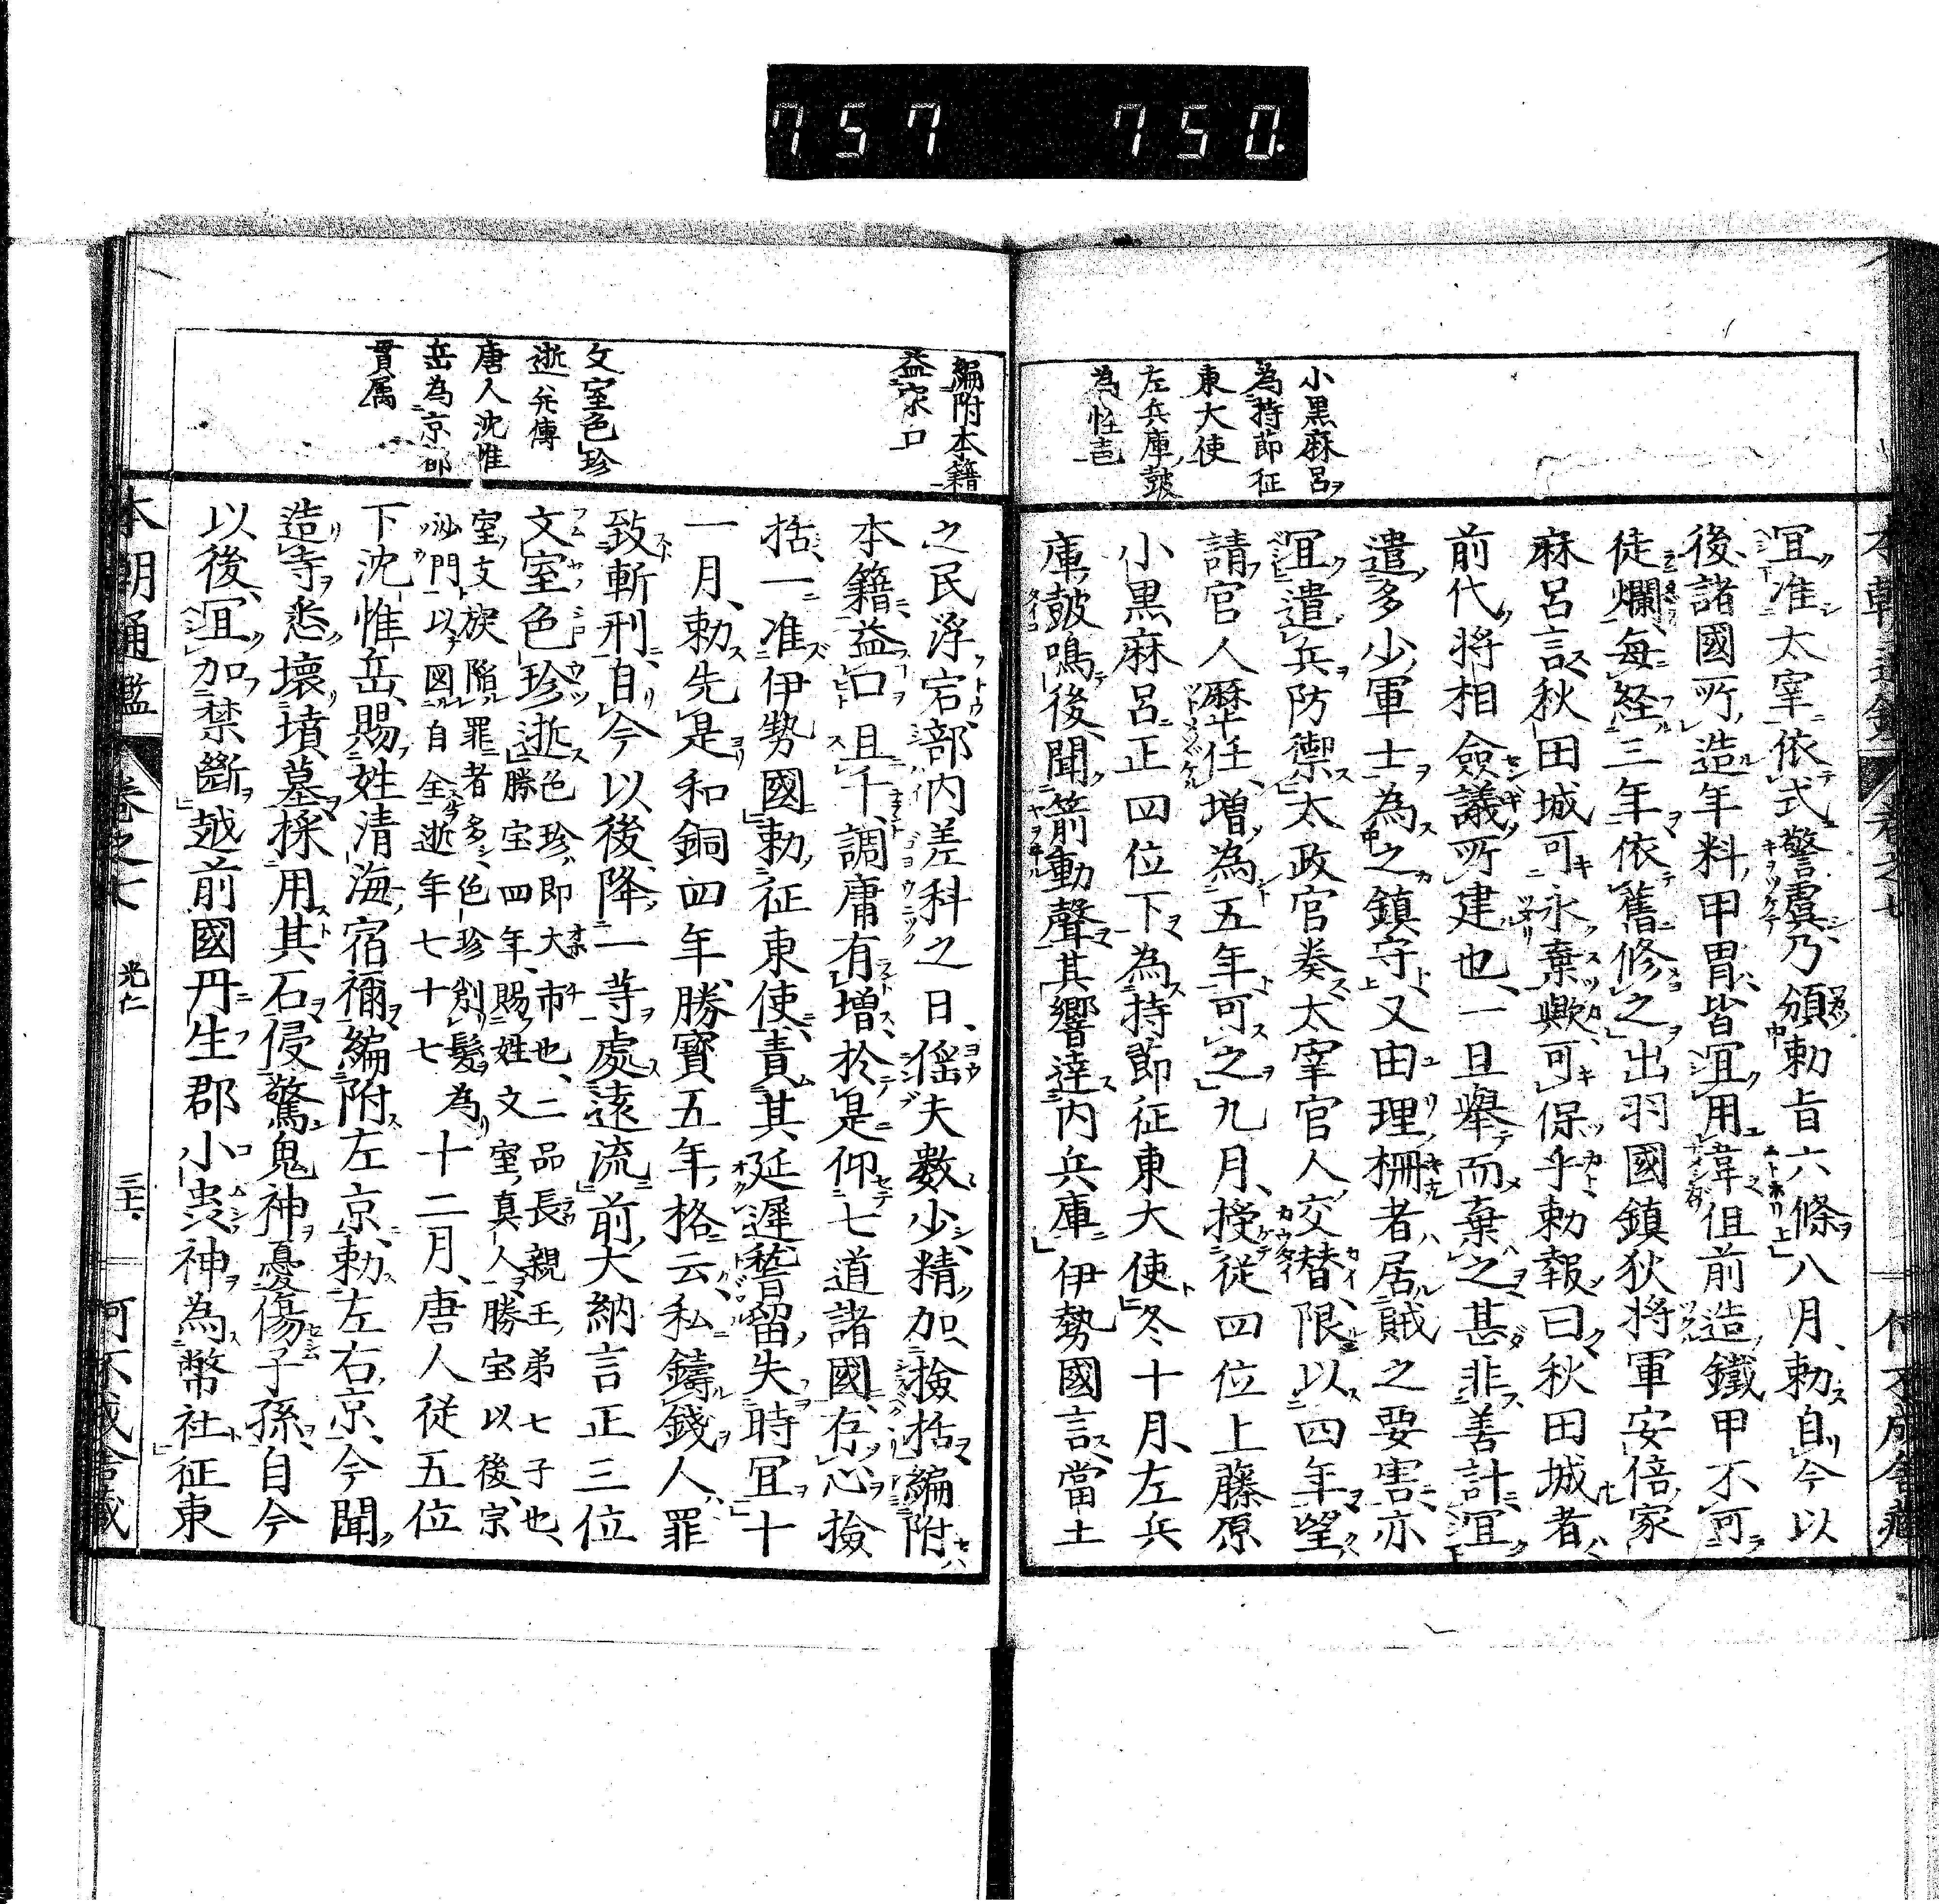 757 750.
小黒麻呂
為持節征
東大使
左兵庫鼓
為恠
宜准太宰依式警虞乃頒勅旨六條八月勅自今以
後諸國所造年料甲冑皆宜用韋但前造鐵甲不可
徒爛每経三年依舊修之出羽國鎮狄將軍安倍家
麻呂言秋田城可永棄歟可保乎勅報曰秋田城者
前代將相僉議所建也一旦舉而棄之甚非善計宜
遣多少軍士為之鎮守又由理柵者居賊之要害亦
宜遣兵防禦太政官奏太宰官人交替限以四年望
請官人歷任增為五年可之九月授從四位上藤原
小黒麻呂正四位下為持節征東大使冬十月左兵
庫鼓鳴後聞箭動聲其響達内兵庫伊勢國言當土
編附本籍
益家口
文室色珍
逝 并傳
唐人沈惟
岳為京都
貫属
之民浮宕部内差科之日徭夫數少精加撿括編附
本籍益口且千調庸有增於是仰七道諸國存心撿
括一准伊勢國勅征東使責其延遲稽留失時宜十
一月勅先是和銅四年勝寶五年格云私鑄錢人罪
致斬刑自今以後降一等處遠流前大納言正三位
文室色珍逝色珍即大市也二品長親王弟七子也
勝宝四年賜姓文室真人勝宝以後宗
室支族陥罪者多色珍剃髪為
沙門以図自全逝年七十七
十二月唐人從五位
下沈惟岳賜姓清海宿禰編附左京勅左右京今聞
造寺悉壞墳墓採用其石侵驚鬼神憂傷子孫自今
以後宜加禁斷越前國丹生郡小虫神為幣社征東
本朝通鑑 卷之七 光仁